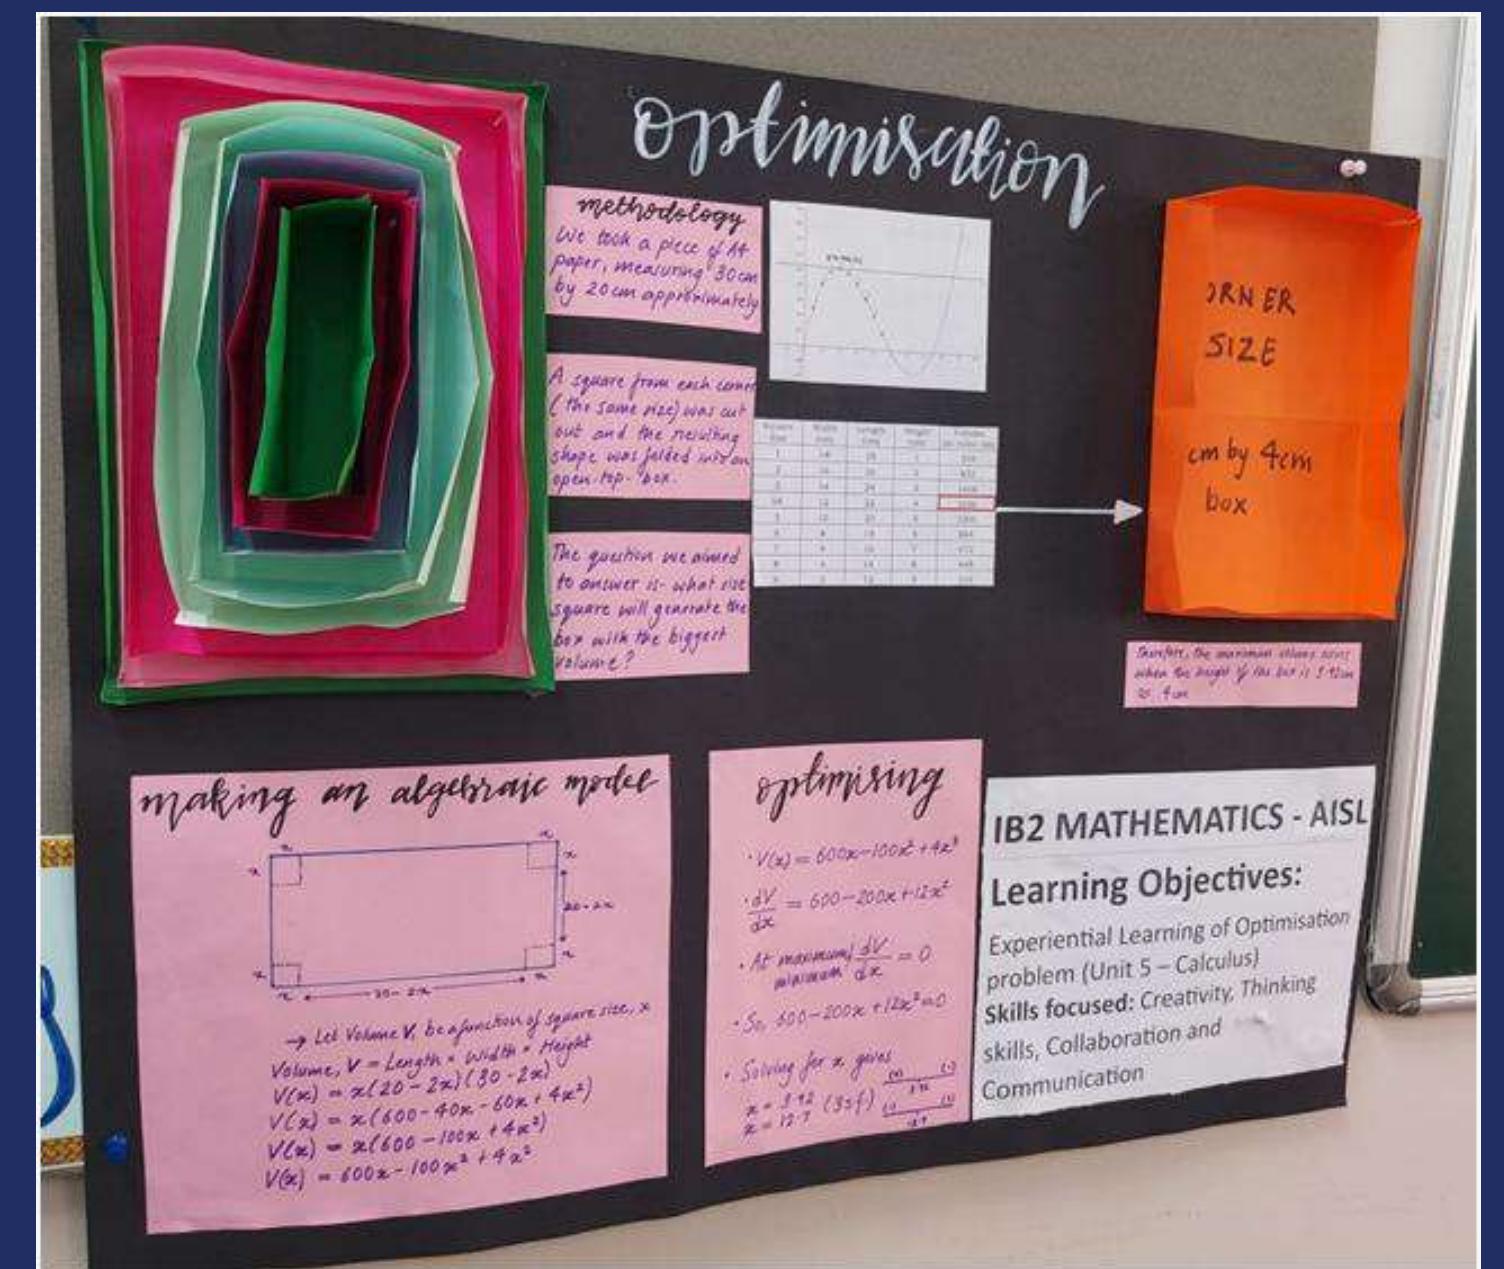 optimisation
methodology
We took a piece of A4
paper, measuring 30cm
by 20cm approximately
A square from each corner
(the same size) was cut
out and the resulting
shape was folded into an
open-top-box.
The question we aimed
to answer is- what size
square will generate the
box with the biggest
volume?
ORNER
SIZE
cm by 4cm
box
Therefore, the maximum volume
when the height of the box is 3.92cm
≈ 4cm
making an algebraic model
x
x
x
x
20-2x
x
x
x
x
30-2x
→ Let Volume V, be a function of square size, x
Volume, V = Length × Width × Height
V(x) = x(20-2x)(30-2x)
V(x) = x(600-40x-60x+4x²)
V(x) = x(600-100x+4x²)
V(x) = 600x-100x²+4x³
optimising
• V(x) = 600x-100x²+4x³
• dV/dx = 600-200x+12x²
• At maximum/
minimum dV/dx = 0
• So, 600-200x+12x²=0
• Solving for x gives
x = 3.92 (3sf)
x = 12.7
IB2 MATHEMATICS - AISL
Learning Objectives:
Experiential Learning of Optimisation
problem (Unit 5 – Calculus)
Skills focused: Creativity, Thinking
skills, Collaboration and
Communication